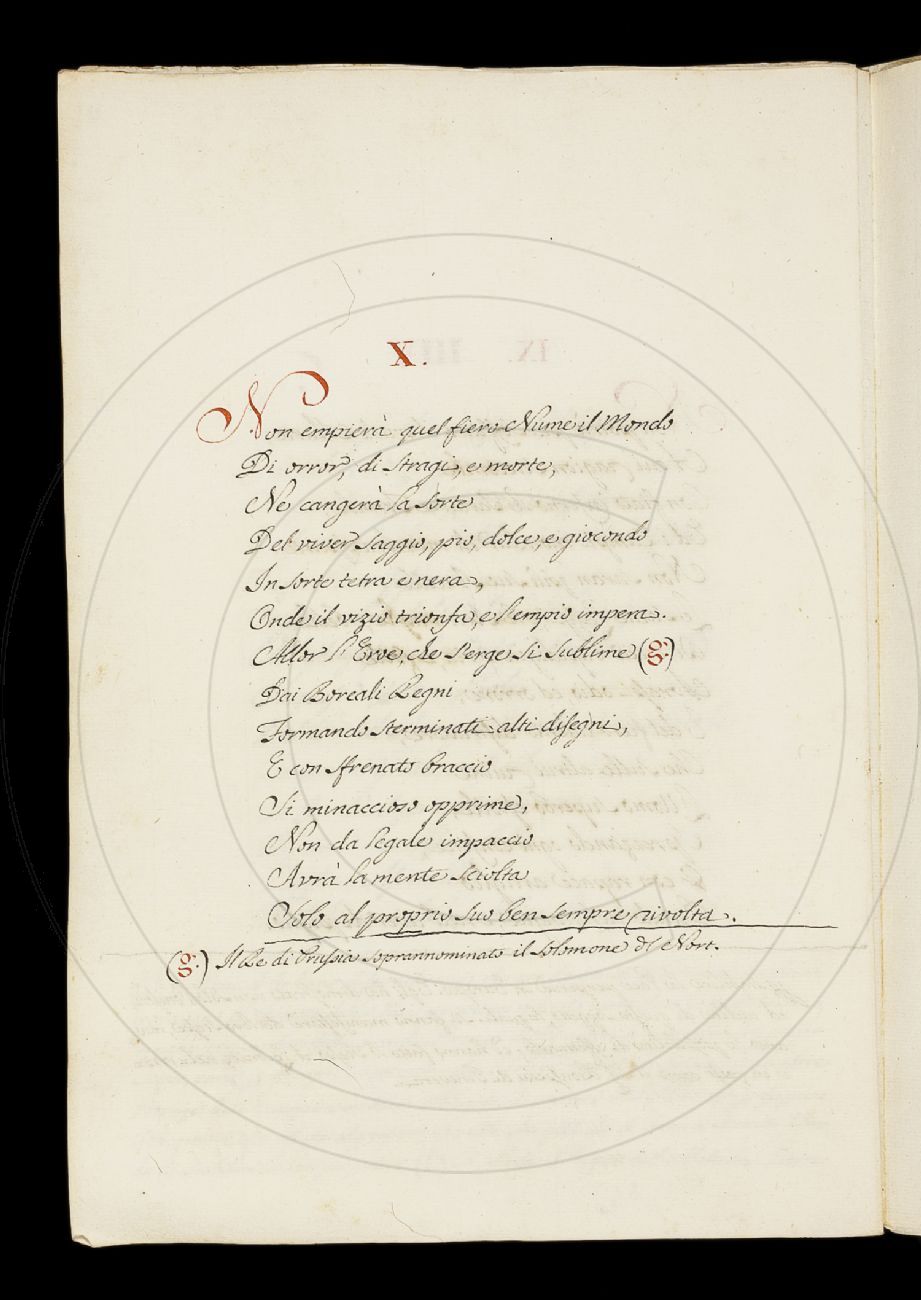 X.
Non empierà quel fiero Nume il Mondo
Di orror, di stragi, e morte,
Ne cangerà la sorte
Del viver saggio, pio, dolce, e giocondo
In sorte tetra e nera,
Onde il vizio trionfa, e l'empio impera.
Allor l'Eroe, che s'erge sì sublime (g.)
Dai Boreali Regni
Formando sterminati alti disegni,
E con sfrenato braccio
Si minaccioso opprime,
Non da legale impaccio
Avrà la mente sciolta
Solo al proprio suo ben sempre rivolta.
(g.) Il Re di Prussia soprannominato il Solomone del Nort.